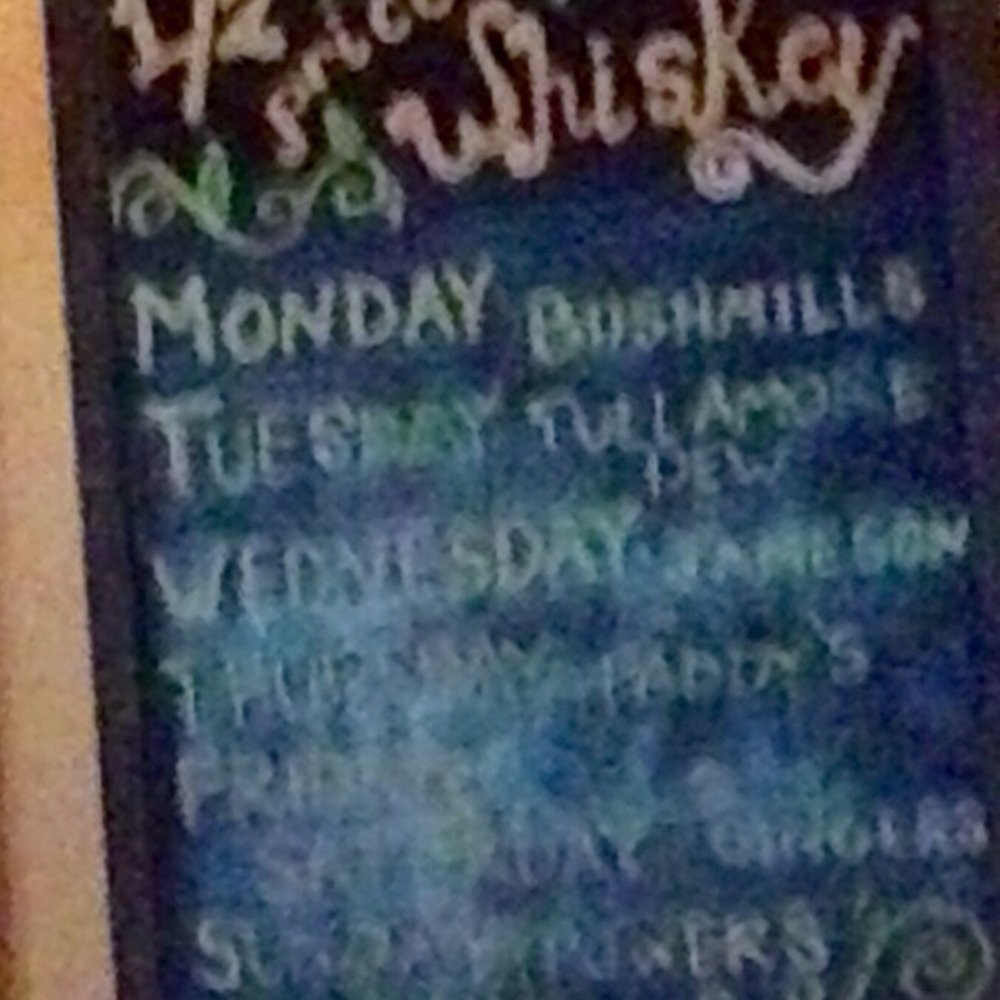 1/2 price Whiskey
MONDAY BUSHMILLS
TUESDAY TULLAMORE
DEW
WEDNESDAY JAMESON
THURSDAY PADDY'S
FRIDAY
SUNDAY POWERS